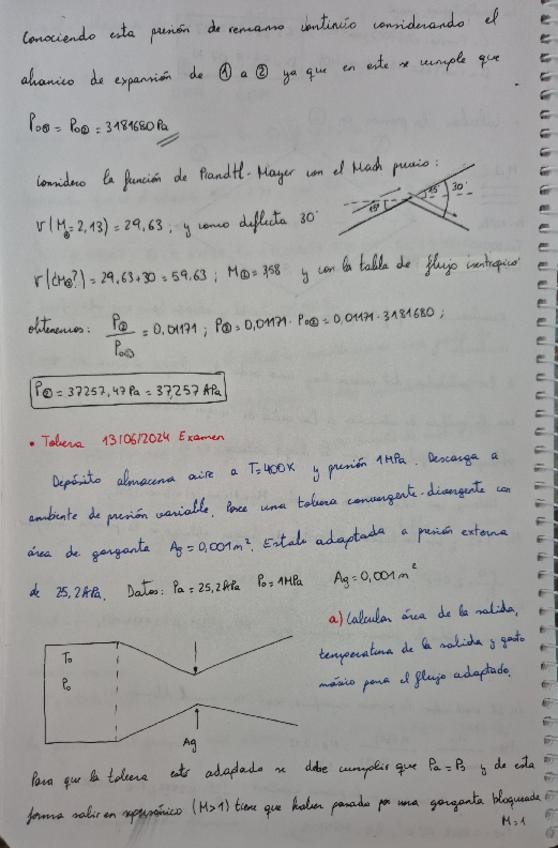 Conociendo esta presión de remanso continúo considerando el
abanico de expansión de ① a ② ya que en este se cumple que
P₀① = P₀② = 3181680 Pa
Considero la función de Prandtl-Mayer con el Mach previo:
ν(M① = 2,13) = 29,63 ; y como deflecta 30°
15° 15° 30°
ν(¿M②?) = 29,63 + 30 = 59,63 ; M② = 3,58 y con la tabla de flujo isentrópico
obtenemos: P②/P₀② = 0,01171 ; P② = 0,01171 · P₀② = 0,01171 · 3181680 ;
P② = 37257,47 Pa = 37,257 kPa
• Tobera 13/06/2024 Examen
Depósito almacena aire a T=400K y presión 1MPa. Descarga a
ambiente de presión variable. Posee una tobera convergente-divergente con
área de garganta Ag = 0,001 m². Estaba adaptada a presión externa
de 25,2 kPa. Datos: Pa = 25,2 kPa P₀ = 1MPa Ag = 0,001 m²
a) Calcular área de la salida,
temperatura de la salida y gasto
másico para el flujo adaptado.
T₀
P₀
Ag
Para que la tobera esté adaptada se debe cumplir que Pa = Ps y de esta
forma salir en supersónico (M>1) tiene que haber pasado por una garganta bloqueada
M=1